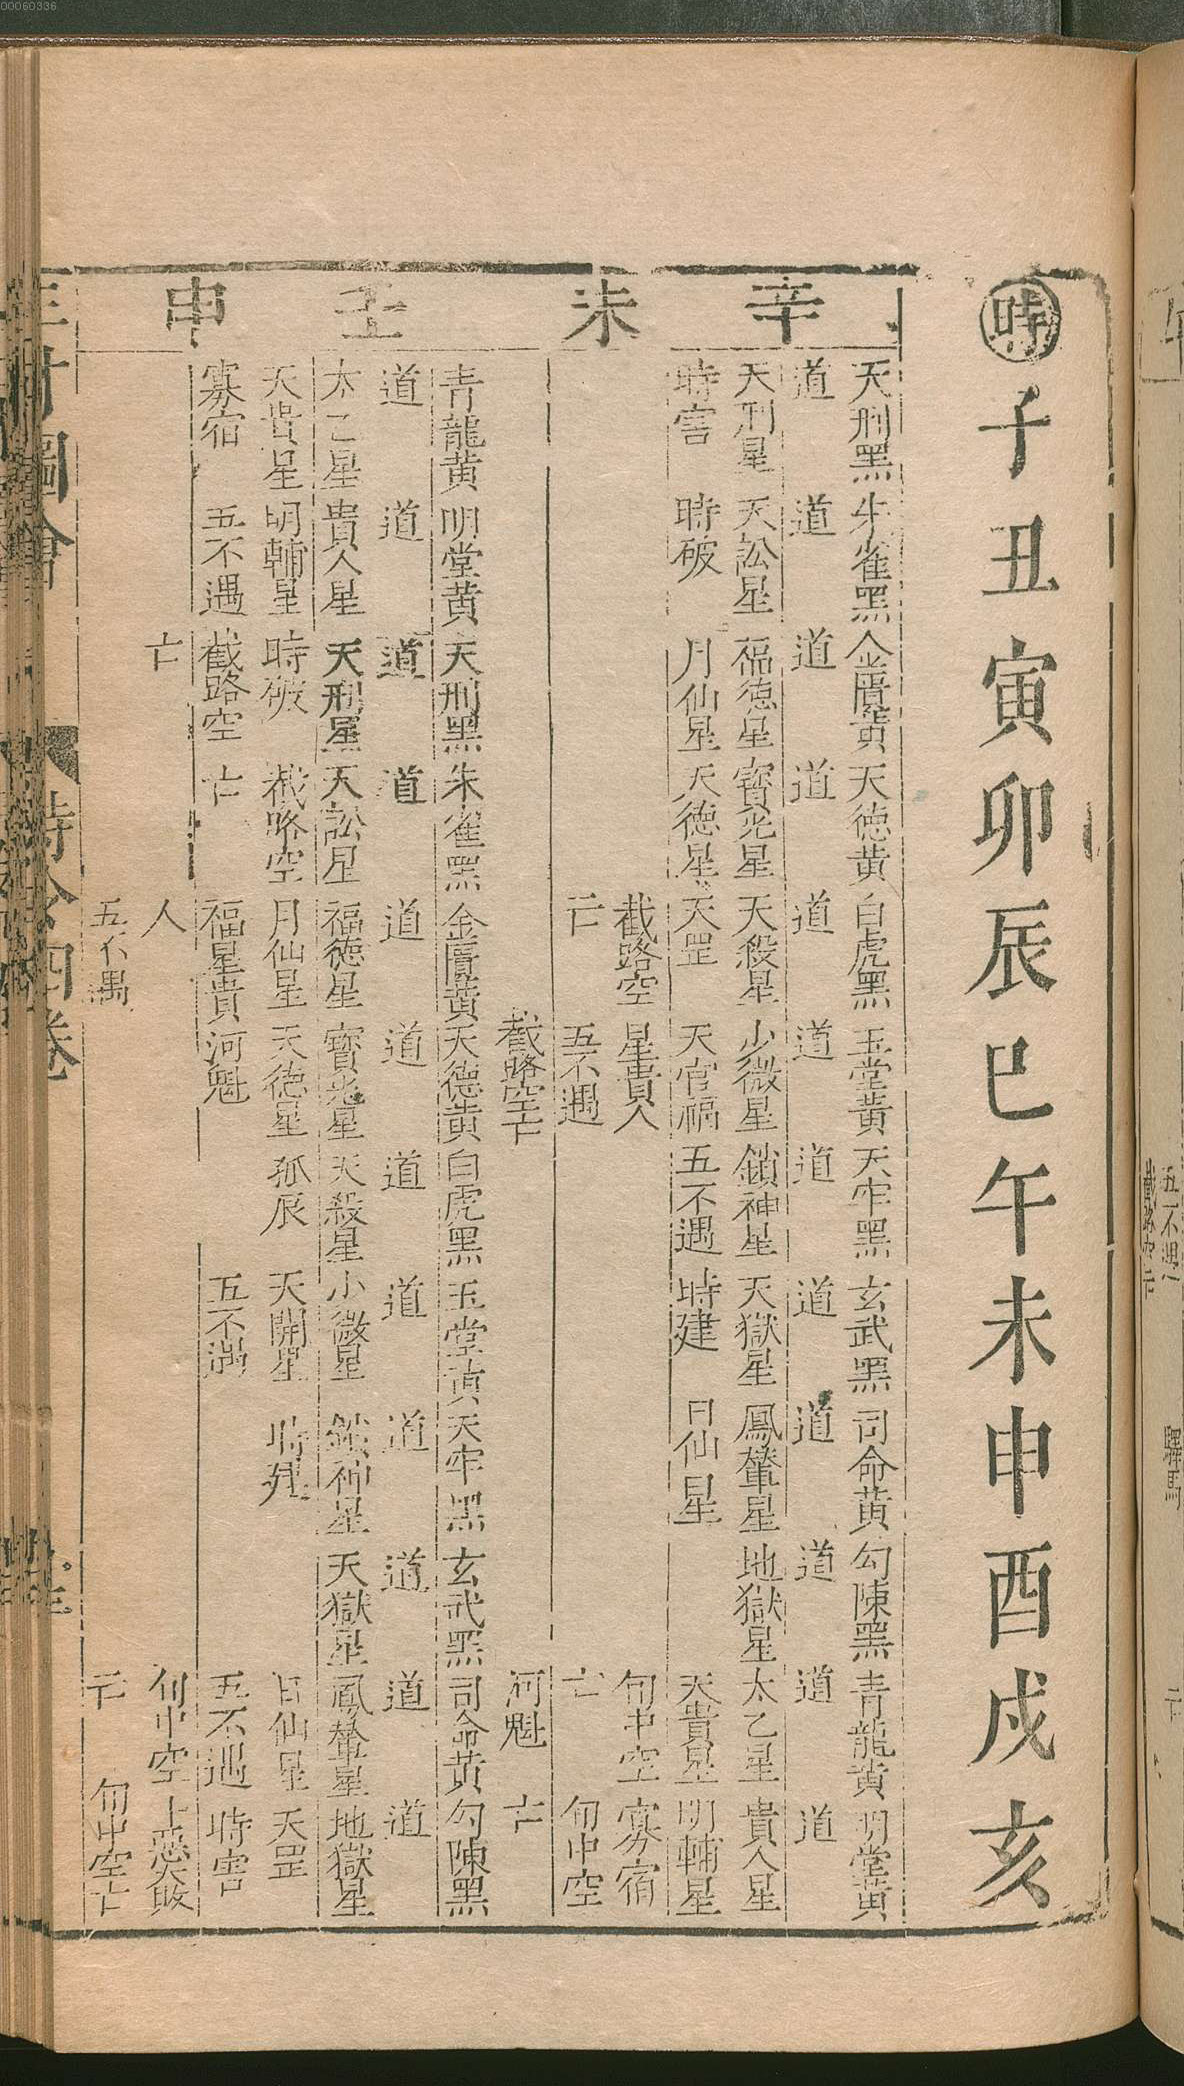 00060336
時子丑寅卯辰巳午未申酉戌亥
辛未
天刑黑 朱雀黑 金匱黃 天德黃 白虎黑 玉堂黃 天牢黑 玄武黑 司命黃 勾陳黑 青龍黃 明堂黃
道 道 道 道 道 道 道 道 道 道 道 道
天刑星 天訟星 福德星 寶光星 天殺星 少微星 鎖神星 天獄星 鳳輦星 地獄星 太乙星 貴人星
時害 時破 月仙星 天德星 天罡 天官福 五不遇 時建 日仙星 天貴星 明輔星
截路空 星貴人 旬中空 寡宿
亡 五不遇 亡 旬中空
截路空亡 河魁 亡
壬申
青龍黃 明堂黃 天刑黑 朱雀黑 金匱黃 天德黃 白虎黑 玉堂黃 天牢黑 玄武黑 司命黃 勾陳黑
道 道 道 道 道 道 道 道 道 道 道 道
太乙星 貴人星 天刑星 天訟星 福德星 寶光星 天殺星 少微星 鎖神星 天獄星 鳳輦星 地獄星
天貴星 明輔星 時破 截路空 月仙星 天德星 孤辰 天開星 時建 日仙星 天罡
寡宿 五不遇 截路空 亡 福星貴 河魁 五不遇 五不遇 時害
亡 人 旬中空 十惡大敗
五不遇 亡 旬中空亡
時令四卷
五不遇
截路空亡
驛馬
亡